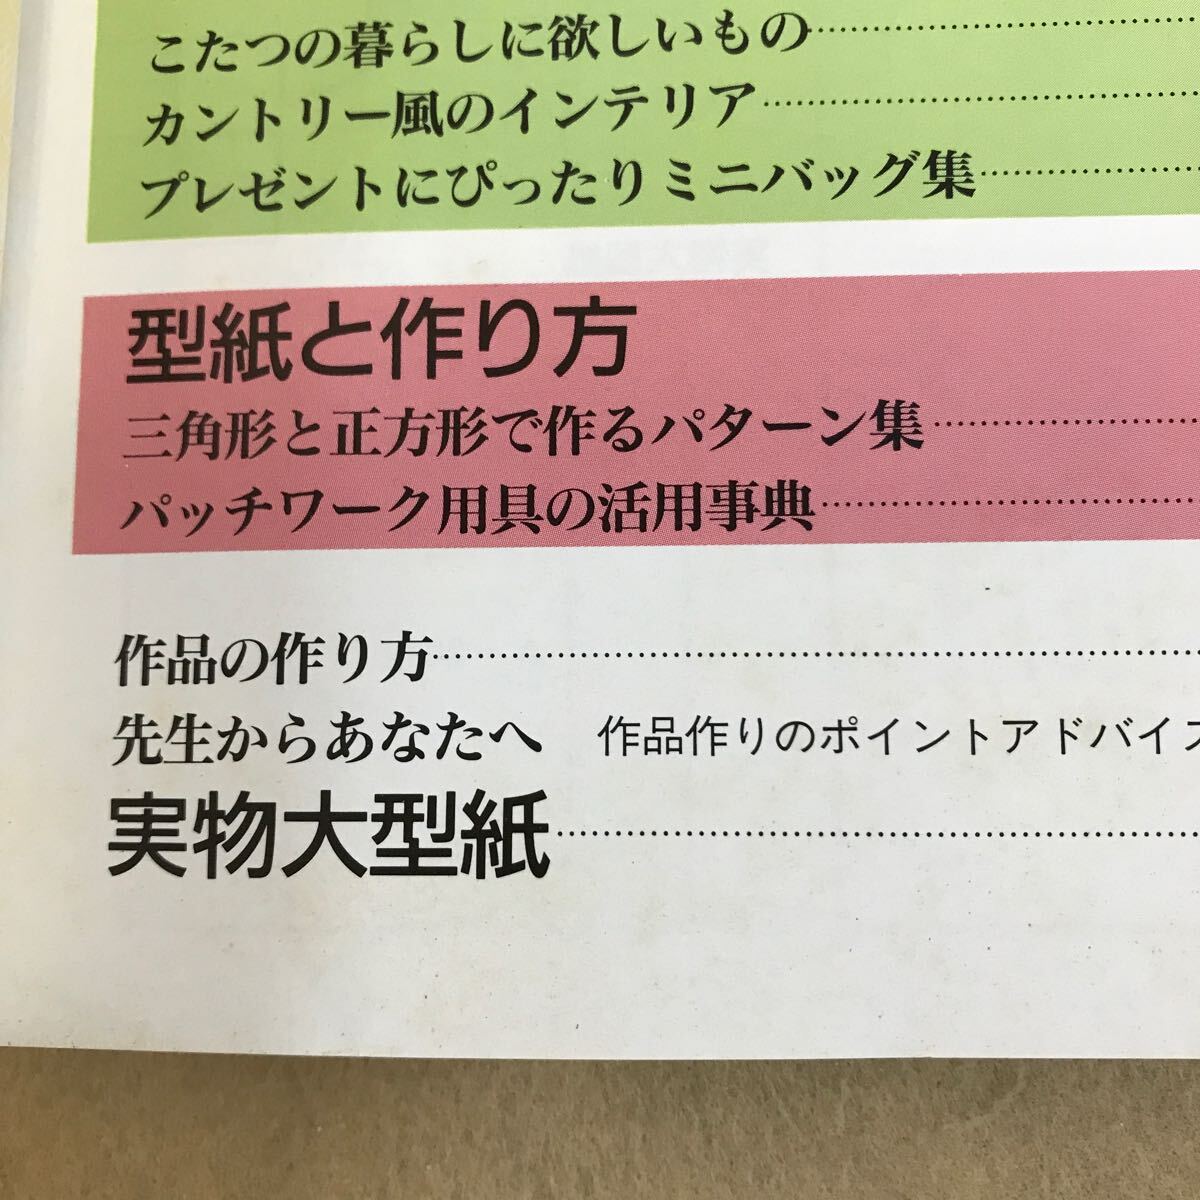 こたつの暮らしに欲しいもの
カントリー風のインテリア
プレゼントにぴったりミニバッグ集
型紙と作り方
三角形と正方形で作るパターン集
パッチワーク用具の活用事典
作品の作り方
先生からあなたへ　作品作りのポイントアドバイス
実物大型紙